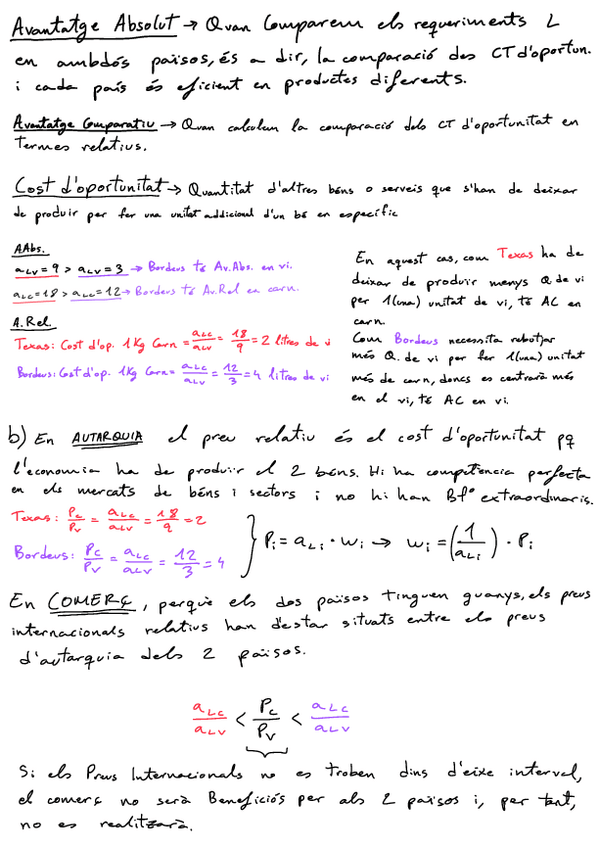 Avantatge Absolut → Quan Comparem els requeriments L
en ambdós països, és a dir, la comparació des CT d'oportun.
i cada país és eficient en productes diferents.
Avantatge Comparatiu → Quan calculem la comparació dels CT d'oportunitat en
Termes relatius.
Cost d'oportunitat → Quantitat d'altres béns o serveis que s'han de deixar
de produir per fer una unitat addicional d'un bé en específic
AAbs.
aLV = 9 > aLV = 3 → Bordeus té Av.Abs. en vi.
aLC = 18 > aLC = 12 → Bordeus té Av.Rel en carn.
A.Rel.
Texas: Cost d'op. 1Kg Carn = aLC/aLV = 18/9 = 2 litres de vi
Bordeus: Cost d'op. 1Kg Carn = aLC/aLV = 12/3 = 4 litres de vi
En aquest cas, com Texas ha de
deixar de produir menys Q. de vi
per 1(una) unitat de vi, té AC en
carn.
Com Bordeus necessita rebutjar
més Q. de vi per fer 1(una) unitat
més de carn, doncs es centrarà més
en el vi, té AC en vi.
b) En AUTARQUIA el preu relatiu és el cost d'oportunitat pq
l'economia ha de produir el 2 béns. Hi ha competència perfecta
en els mercats de béns i sectors i no hi han Bfº extraordinaris.
Texas: Pc/Pv = aLC/aLV = 18/9 = 2
Bordeus: Pc/Pv = aLC/aLV = 12/3 = 4
} Pi = aLi · wi → wi = (1/aLi) · Pi
En COMERÇ, perquè els dos països tinguen guanys, els preus
internacionals relatius han d'estar situats entre els preus
d'autarquia dels 2 països.
aLC/aLV < Pc/Pv < aLC/aLV
Si els Preus Internacionals no es troben dins d'eixe interval,
el comerç no serà Beneficiós per als 2 països i, per tant,
no es realitzarà.